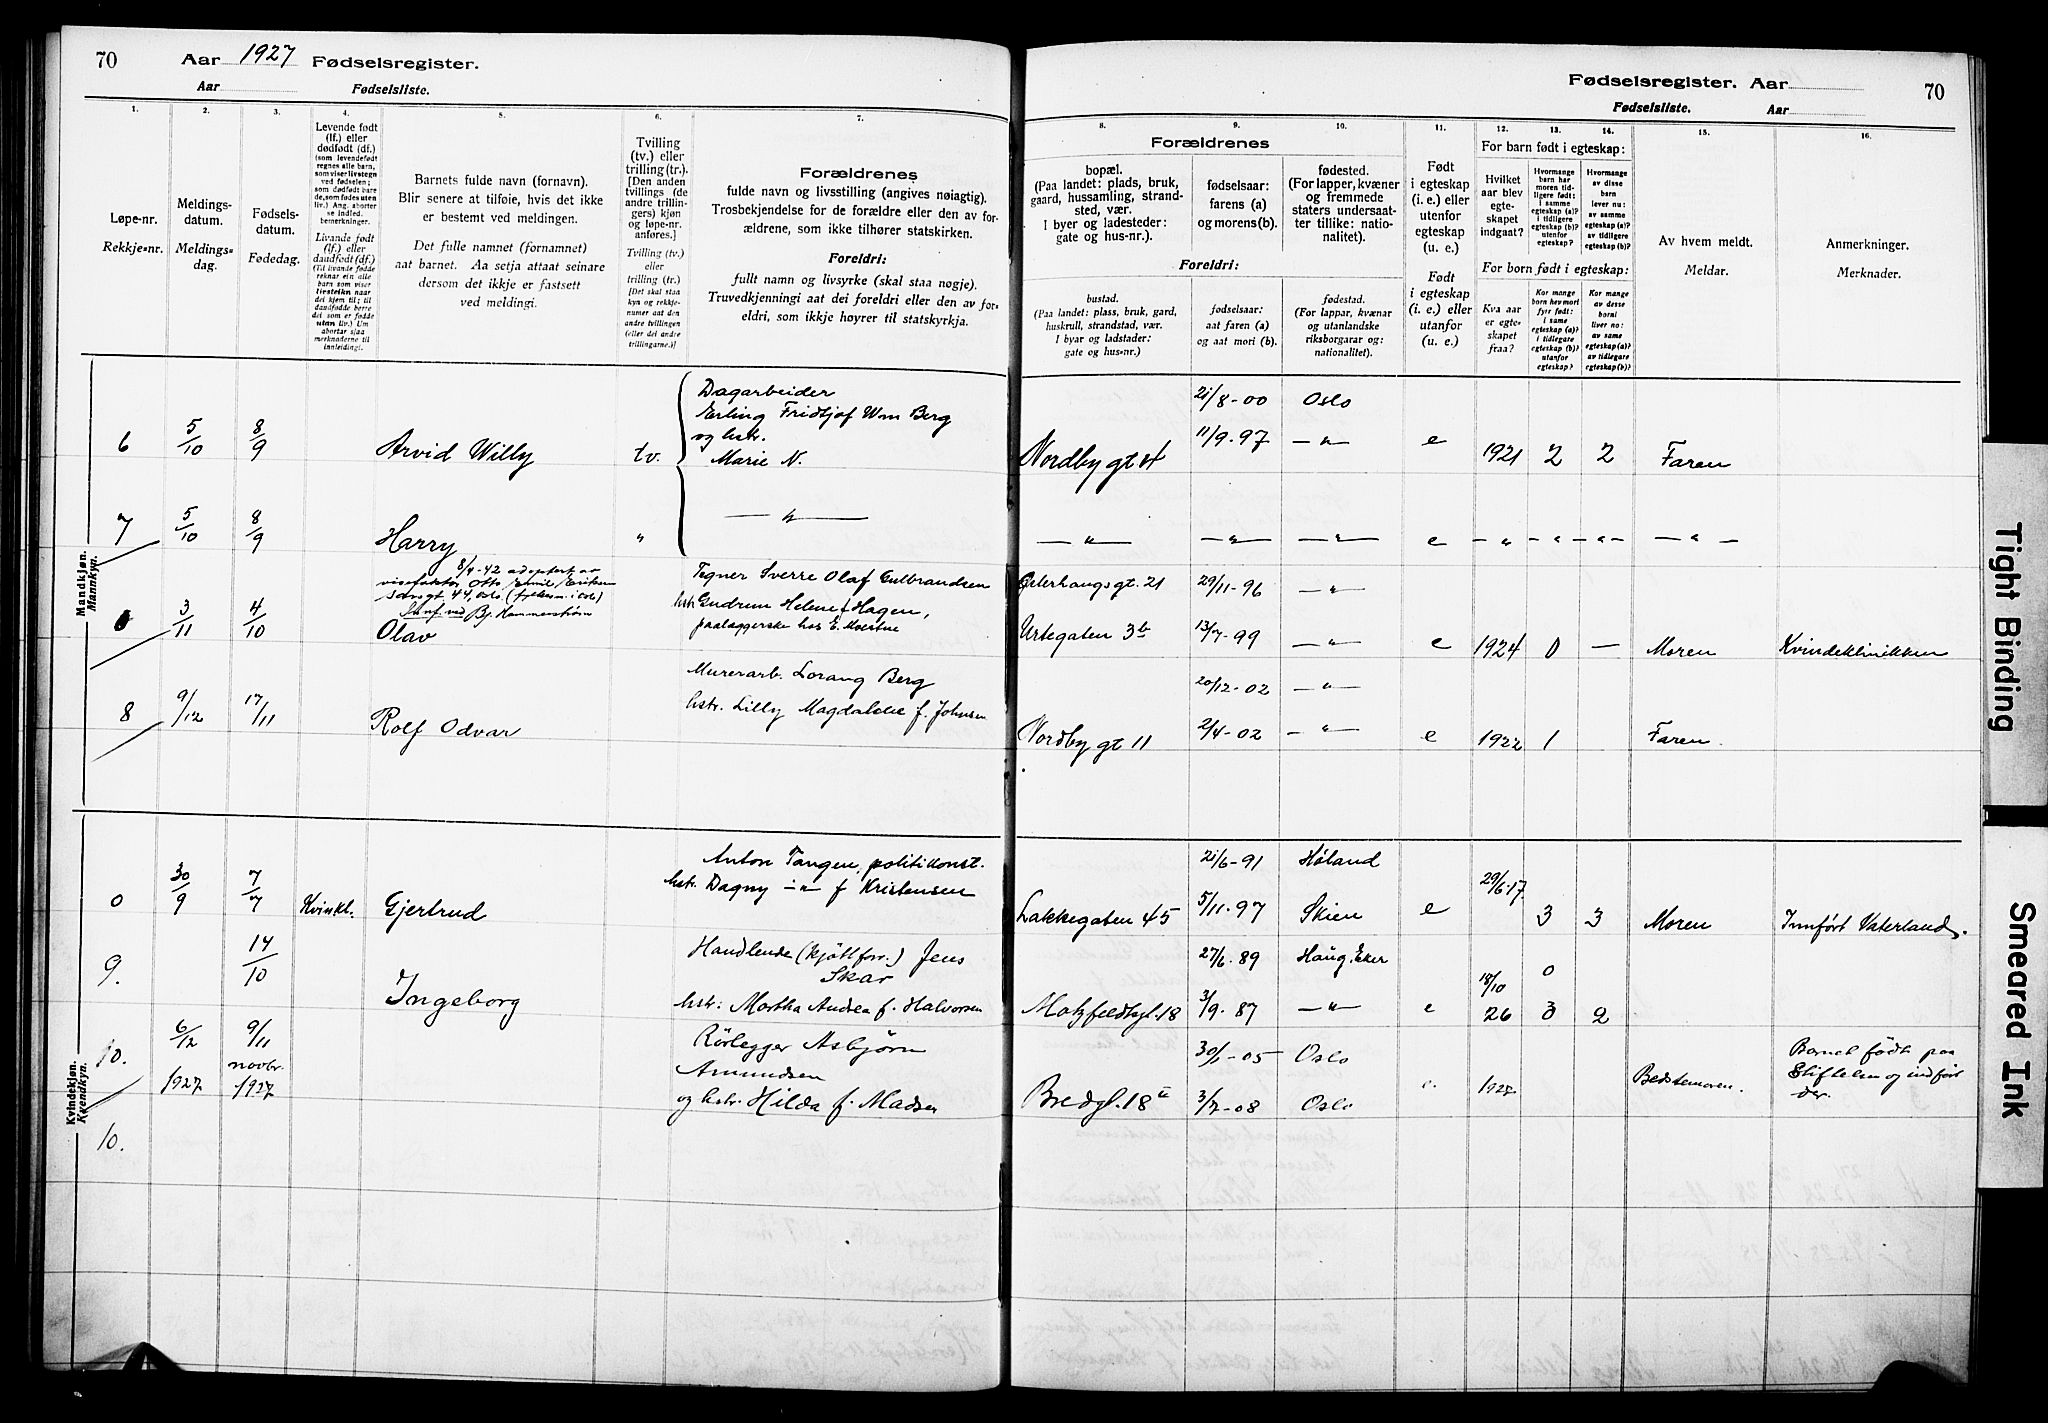 70 Aar 1927 Fødselsregister.
Aar Fødselsliste.
Fødselsregister. Aar 70
Fødselsliste. Aar
1.
Løpe-nr.
Rekkje-nr.
2.
Meldings-
datum.
Meldings-
dag.
3.
Fødsels-
datum.
Fødedag.
4.
Levende født
(lf.) eller
dødfødt (df.)
(som levendefødt
regnes alle barn,
som viser livstegn
ved fødselen;
som dødfødt bare
de, som fødes uten
liv.) Ang. aborter
se indled.
bemerkninger.
Livande født
(lf.) eller
daudfødt (df.)
(Til livande fødde
reknar ein alle
barn som viser
livsteikn naar
dei kjem til; til
daudfødde berre
dei som er fødde
utan liv.) Um
abortar sjaa
merknaderne til
innleidingi.
5.
Barnets fulde navn (fornavn).
Blir senere at tilføie, hvis det ikke
er bestemt ved meldingen.
Det fulle namnet (fornamnet)
aat barnet. Aa setja attaat seinare
dersom det ikkje er fastsett
ved meldingi.
6.
Tvilling
(tv.) eller
trilling (tr.).
[Den anden
tvillings (de
andre trillin-
gers) kjøn
og løpe-nr.
anføres.]
Tvilling (tv.)
eller
trilling (tr.)
[Det skal staa
kyn og rekkje-
numer aat den
andre tvillingen
(eller dei andre
trillingarne.)]
7.
Forældrenes
fulde navn og livsstilling (angives nøiagtig).
Trosbekjendelse for de forældre eller den av for-
ældrene, som ikke tilhører statskirken.
Foreldri:
fullt namn og livsyrke (skal staa nøgje).
Truvedkjenningi aat dei foreldri eller den av for-
eldri, som ikkje høyrer til statskyrkja.
Forældrenes
8.
bopæl.
(Paa landet: plads, bruk,
gaard, hussamling, strand-
sted, vær.
I byer og ladesteder:
gate og hus-nr.).
9.
fødselsaar:
farens (a)
og morens (b).
10.
fødested.
(For lapper, kvæner
og fremmede
staters undersaat-
ter tillike: natio-
nalitet).
Foreldri:
bustad.
(Paa landet: plass, bruk, gard,
huskrull, strandstad, vær.
I byar og ladstader:
gate og hus-nr.)
fødselsaar:
aat faren (a)
og aat mori (b).
fødestad.
(For lappar, kvænar
og utanlandske
riksborgarar og:
nationalitet).
11.
Født
i egteskap
(i. e.) eller
utenfor
egteskap
(u. e.)
Født
i egteskap
(i. e.) eller
utanfor
(u. e.)
For barn født i egteskap:
12.
Hvilket
aar blev
egte-
skapet
indgaat?
13.
Hvormange
barn har
moren tid-
ligere født:
i samme
egteskap (a)?
i tidligere
egteskap (b)?
utenfor
egteskap?
14.
Hvormange
av disse
barn
lever nu:
av samme
egteskap (a)?
av tidligere
egteskap (b)?
For born født i egteskap:
Kva aar
er egte-
skapet
fraa?
Kor mange
born hev mori
fyrr født:
i same
egteskap (a)?
i tidlegare
egteskap (b)?
utanfor
egteskap?
Kor mange
av desse
borni
liver no:
av same
egteskap (a)?
av tidlegare
egteskap (b)?
15.
Av hvem meldt.
Meldar.
16.
Anmerkninger.
Merknader.
Mandkjøn.
Mannkyn.
Dagarbeider 21/8-00 Oslo
Erling Fridtjof Wm Berg
og hstr. 11/9-97 —〃—
6 5/10 8/9 Arvid Willy tv. Marie N. Nordby gt 4 e 1921 2 2 Faren
7 5/10 8/9 Harry 〃 —〃— —〃— —〃— —〃— e —〃— —〃— —〃— —〃—
8/4-42 adoptert av
visefaktor Otto Emil Eriksen
44, Oslo
Bj. Hammerstrøm
Tegner Sverre Olaf Gulbrandsen Østerhaugsgt. 21 29/11-96 —〃—
hstr Gudrun Helene f Hagen,
0 3/11 4/10 Olav paalæggerske hos E. Moestue Urtegaten 3b 13/7-99 —〃— e 1924 0 — Moren Kvindeklinikken
Murerarb. Lorang Berg 20/12-02 —〃—
8 9/12 17/11 Rolf Odvar hstr. Lilly Magdalene f. Johnsen Nordby gt 11 2/4-02 —〃— e 1922 1 Faren.
Kvindekjøn.
Kvendkyn.
Anton Tangen, politikonst. 21/6-91 Høland
0 30/9 7/7 Kvinkl. Gjertrud hstr. Dagny —〃— f Kristensen Lakkegaten 45 5/11-97 Skien e 29/6-17. 3 3 Moren Innført Vaterland.
9. 14/10 Handlende (kjøttforr.) Jens 27/6. 89 Haug, Eker
Skar 0
Ingeborg hstr: Martha Andrea f. Halvorsen Motzfeldtsgt. 18 3/9. 87 —〃— e 18/10 26 3 2
10. 6/12 1927 9/11 novbr. 1927 Rørlegger Asbjørn 30/1-05 Oslo
Amundsen
og hstr. Hilda f. Madsen Bredgt. 18 3/7-08 Oslo e. 1927 Bedstemoren. Barnet født paa
Stiftelsen og indført
der.
10.
Tight Binding
Smeared Ink